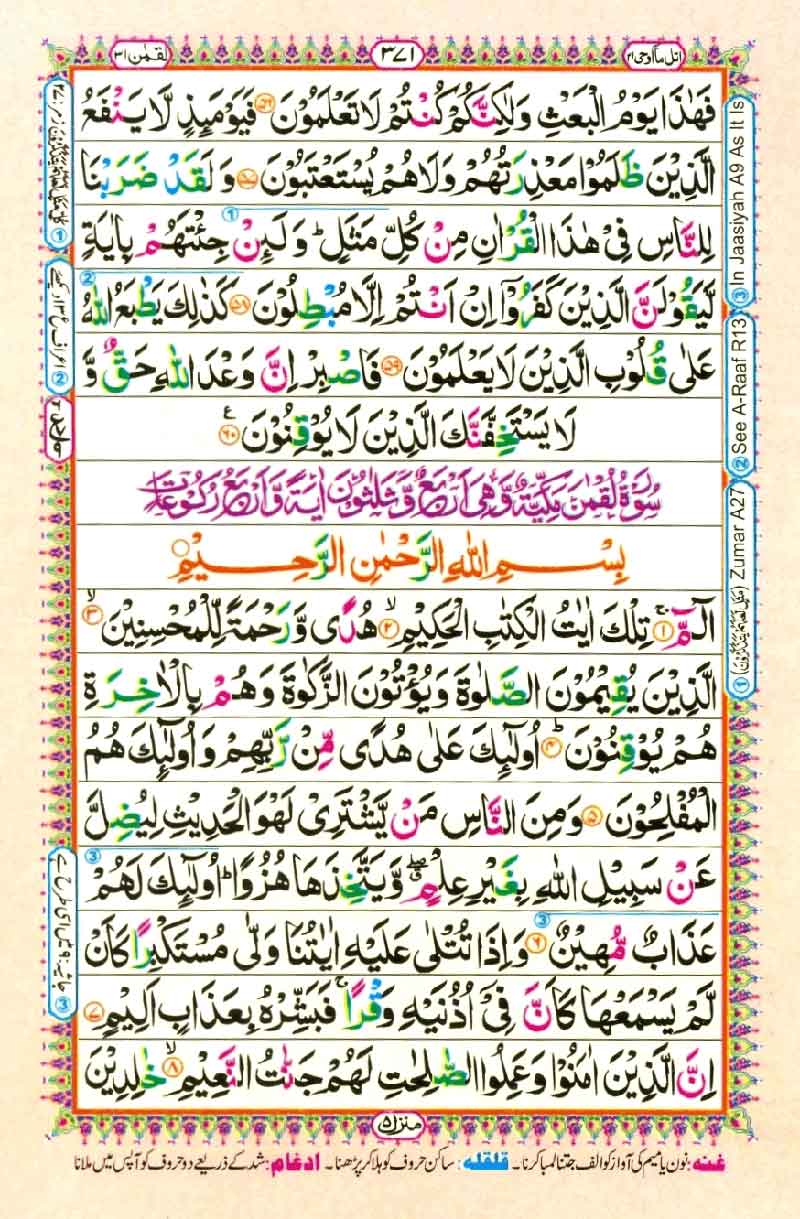 اتل ما اوحی ۲۱
۳۷۱
لقمٰن ۳۱
فَهٰذَا یَوْمُ الْبَعْثِ وَلٰكِنَّكُمْ كُنْتُمْ لَا تَعْلَمُوْنَ ۝۵۶ فَیَوْمَىِٕذٍ لَّا یَنْفَعُ
الَّذِیْنَ ظَلَمُوْا مَعْذِرَتُهُمْ وَلَا هُمْ یُسْتَعْتَبُوْنَ ۝۵۷ وَ لَقَدْ ضَرَبْنَا
لِلنَّاسِ فِیْ هٰذَا الْقُرْاٰنِ مِنْ كُلِّ مَثَلٍ ؕ وَ لَىِٕنْ جِئْتَهُمْ بِاٰیَةٍ
لَّیَقُوْلَنَّ الَّذِیْنَ كَفَرُوْۤا اِنْ اَنْتُمْ اِلَّا مُبْطِلُوْنَ ۝۵۸ كَذٰلِكَ یَطْبَعُ اللّٰهُ
عَلٰى قُلُوْبِ الَّذِیْنَ لَا یَعْلَمُوْنَ ۝۵۹ فَاصْبِرْ اِنَّ وَعْدَ اللّٰهِ حَقٌّ وَّ
لَا یَسْتَخِفَّنَّكَ الَّذِیْنَ لَا یُوْقِنُوْنَ ۝۶۰ ع
سُوْرَةُ لُقْمٰنَ مَكِّیَّةٌ وَّهِیَ اَرْبَعٌ وَّثَلٰثُوْنَ اٰیَةً وَّاَرْبَعُ رُكُوْعَاتٍ
بِسْمِ اللّٰهِ الرَّحْمٰنِ الرَّحِیْمِ
الٓمّٓ ۝۱ تِلْكَ اٰیٰتُ الْكِتٰبِ الْحَكِیْمِ ۝۲ هُدًى وَّ رَحْمَةً لِّلْمُحْسِنِیْنَ ۝۳
الَّذِیْنَ یُقِیْمُوْنَ الصَّلٰوةَ وَ یُؤْتُوْنَ الزَّكٰوةَ وَ هُمْ بِالْاٰخِرَةِ
هُمْ یُوْقِنُوْنَ ۝۴ اُولٰٓىِٕكَ عَلٰى هُدًى مِّنْ رَّبِّهِمْ وَ اُولٰٓىِٕكَ هُمُ
الْمُفْلِحُوْنَ ۝۵ وَمِنَ النَّاسِ مَنْ یَّشْتَرِیْ لَهْوَ الْحَدِیْثِ لِیُضِلَّ
عَنْ سَبِیْلِ اللّٰهِ بِغَیْرِ عِلْمٍ وَّ یَتَّخِذَهَا هُزُوًا ؕ اُولٰٓىِٕكَ لَهُمْ
عَذَابٌ مُّهِیْنٌ ۝۶ وَ اِذَا تُتْلٰى عَلَیْهِ اٰیٰتُنَا وَلّٰى مُسْتَكْبِرًا كَاَنْ
لَّمْ یَسْمَعْهَا كَاَنَّ فِیْۤ اُذُنَیْهِ وَقْرًا ۚ فَبَشِّرْهُ بِعَذَابٍ اَلِیْمٍ ۝۷
اِنَّ الَّذِیْنَ اٰمَنُوْا وَعَمِلُوا الصّٰلِحٰتِ لَهُمْ جَنّٰتُ النَّعِیْمِ ۝۸ خٰلِدِیْنَ
③ In Jaasiyah A9 As It Is
② See A-Raaf R13
① Zumar A27
منزل ۵
غنه: نون یا میم کی آواز کو الف جتنا لمبا کرنا۔ قلقله: ساکن حروف کو ہلا کر پڑھنا۔ ادغام: شد کے ذریعے دو حروف کو آپس میں ملانا